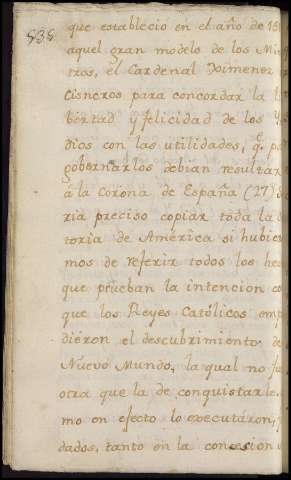 535
que establecio en el año de 15
aquel gran modelo de los Mi
tros, el Cardenal Ximenez
Cisneros para concordar la l
bertad y felicidad de los Y
dios con las utilidades, q. po
gobernarlos debian resultar
à la Corona de España (27) S
ria preciso copiar toda la
toria de America si hubie
mos de referir todos los hec
que prueban la intencion co
que los Reyes Católicos emp
dieron el descubrimiento de
Nuevo Mundo, la qual no fu
otra que la de conquistarle,
mo en efecto lo executáron,
dados, tanto en la concesion